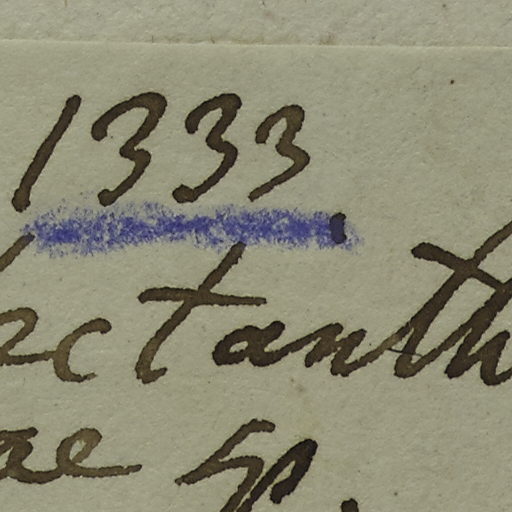 1333.
actanth
ae sp.